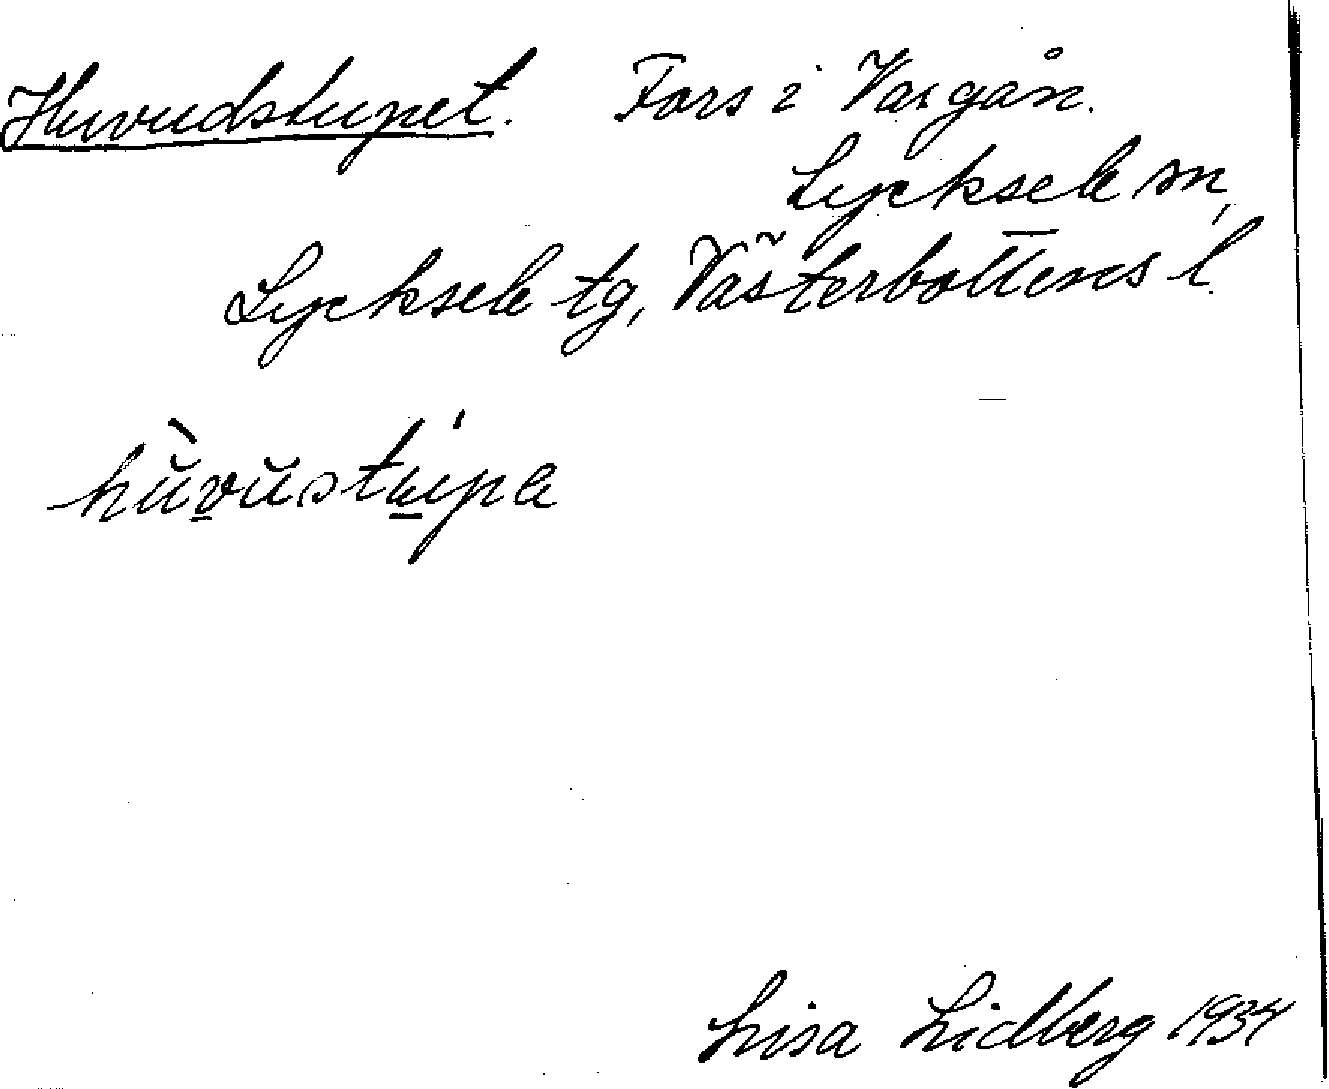 Huvudstupet. Fors i Vargån.
Lycksele sn,
Lycksele tg, Västerbottens l.
hŭ̀vŭstu̠'pa
Lisa Lidberg 1934